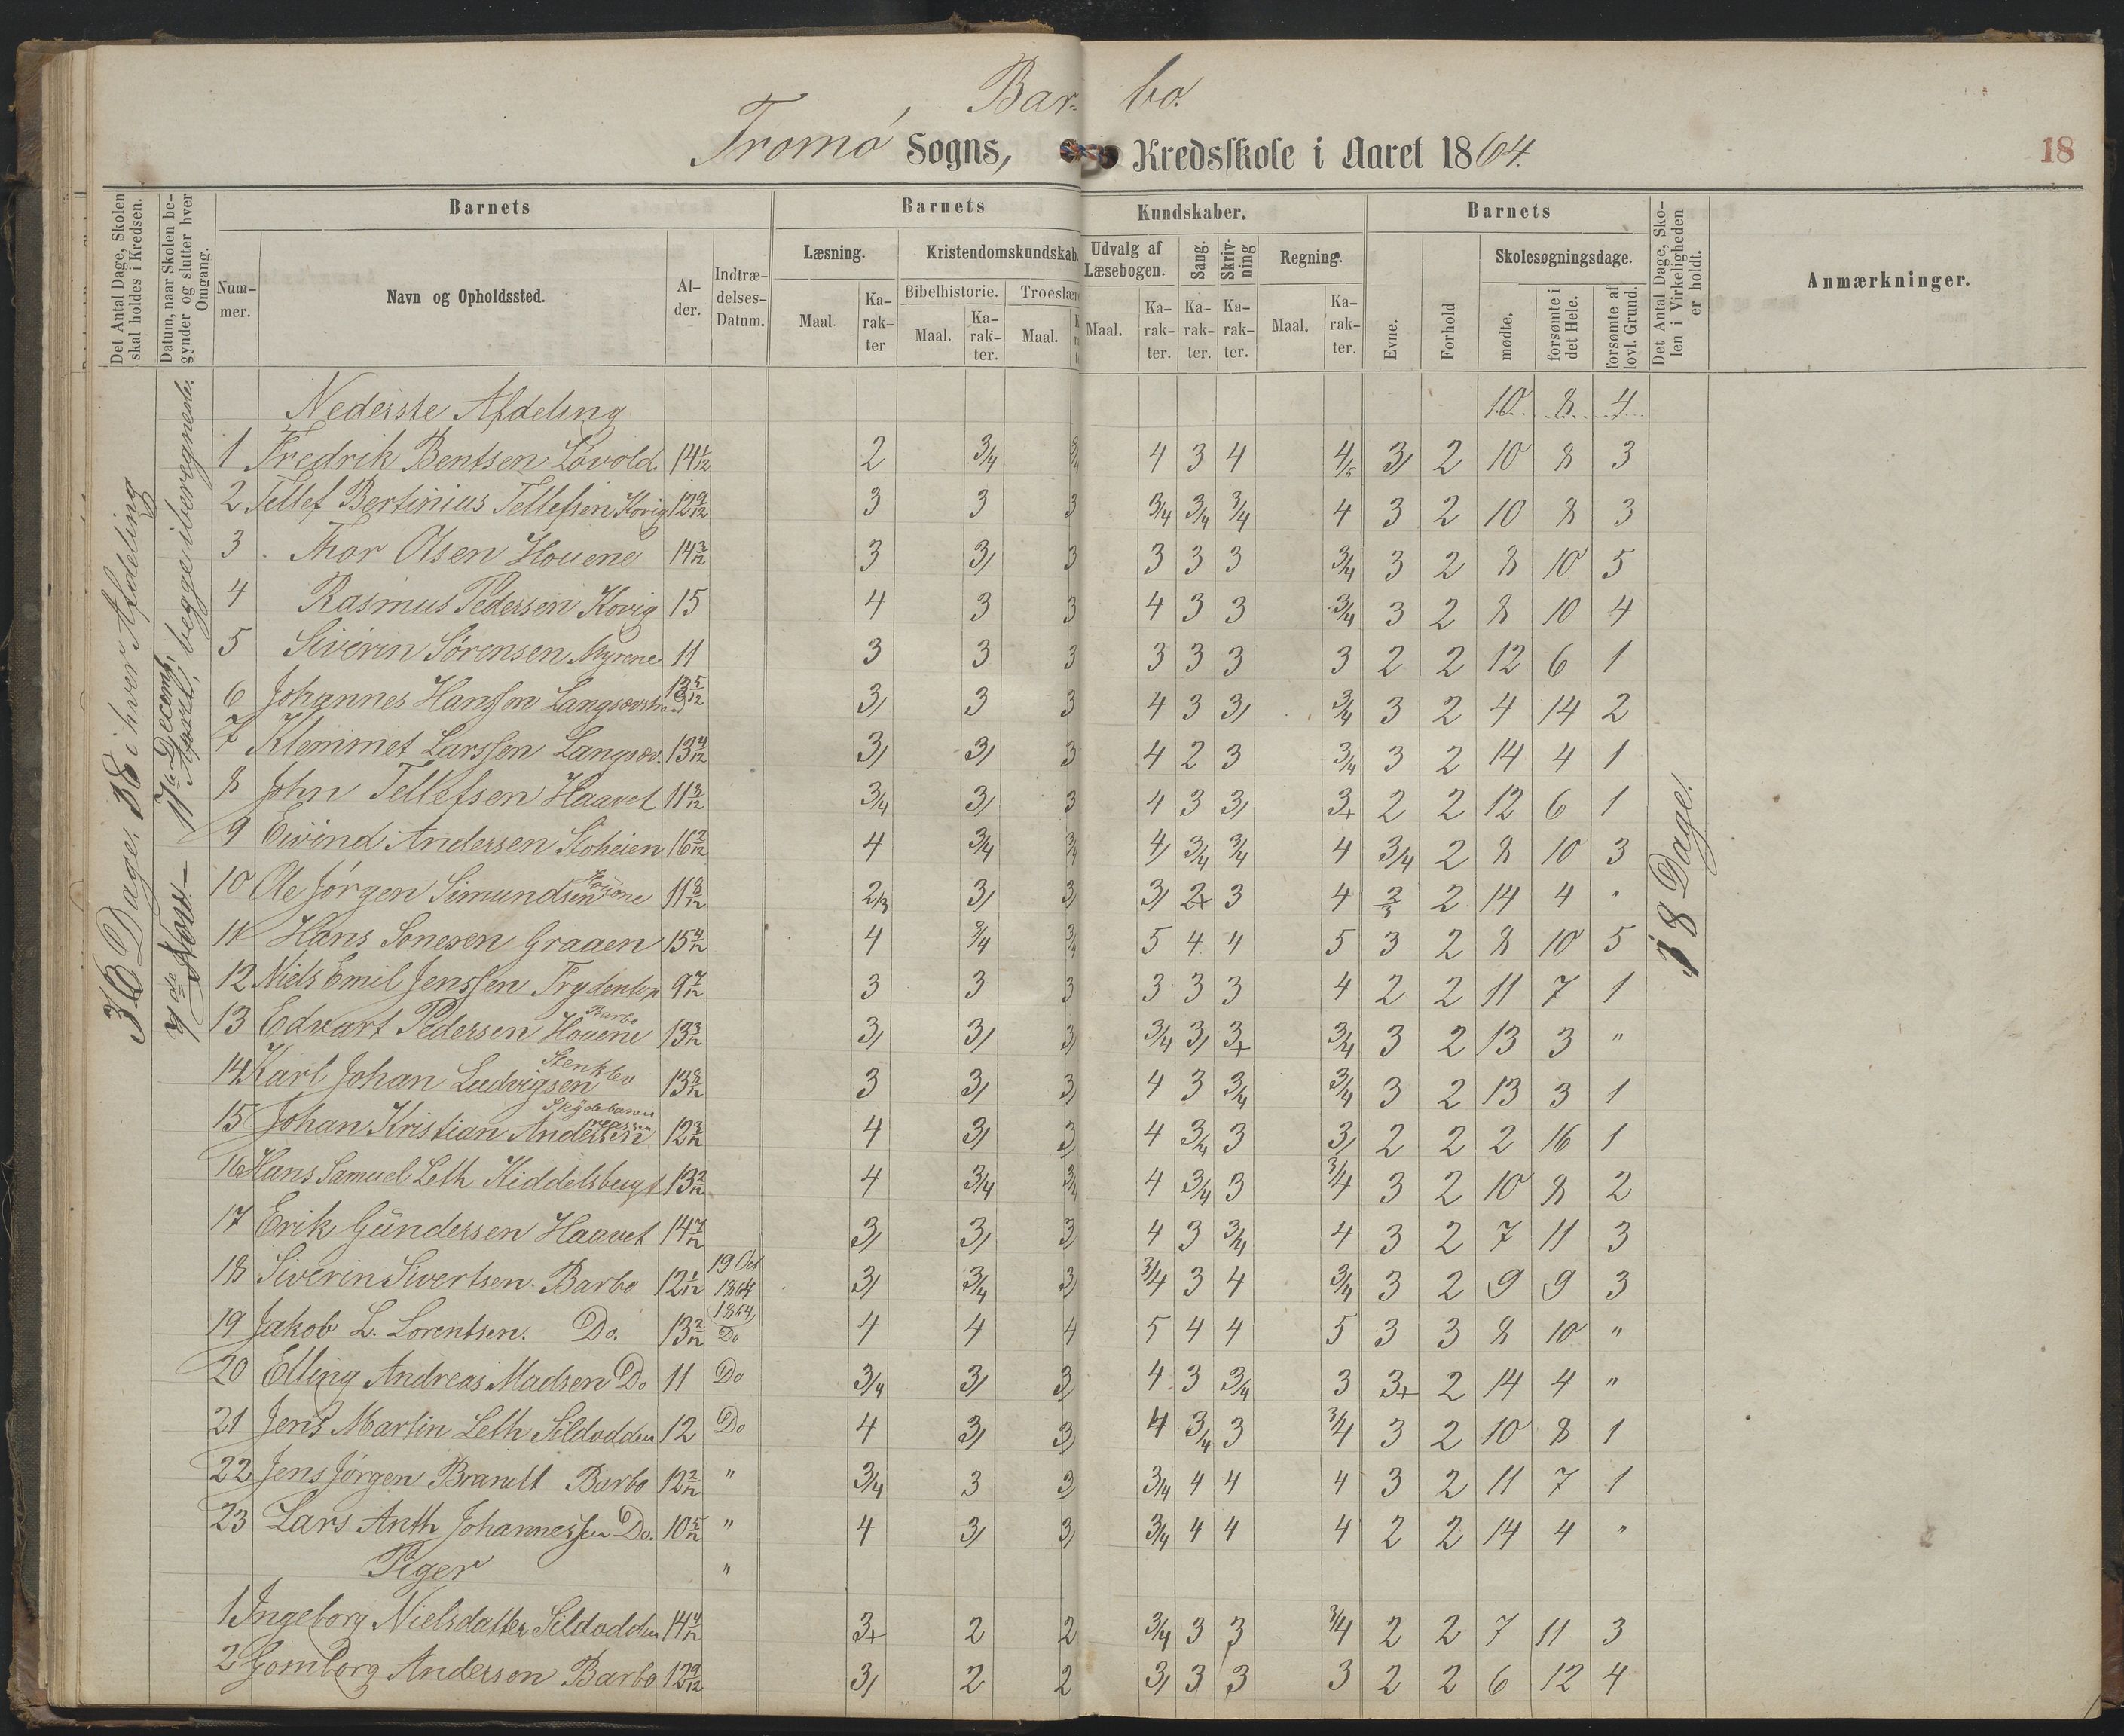 Bar- bo.
Tromø Sogns, Kredsskole i Aaret 1864.
18
Det Antal Dage, Skolen skal holdes i Kredsen.
Datum, naar Skolen begynder og slutter hver Omgang.
Barnets
Barnets
Kundskaber.
Barnets
Det Antal Dage, Skolen i Virkeligheden er holdt.
Anmærkninger.
Nummer.
Navn og Opholdssted.
Alder.
Indtrædelses-Datum.
Læsning.
Kristendomskundskab.
Udvalg af Læsebogen.
Sang.
Skrivning
Regning.
Evne.
Forhold
Skolesøgningsdage.
Bibelhistorie.
Troeslære
Maal.
Karakter
Maal.
Karakter.
Maal.
Maal.
Karakter.
Karakter.
Karakter.
Maal.
Karakter.
mødte.
forsømte i det Hele.
forsømte af lovl. Grund.
36 Dage. i hver Afdeling
7de Novr— 17de Decemb, April, begge iberegnede.
18 Dage.
Nederste Afdeling 10 8 4
1 Fredrik Bentsen Løvold. 14 1/12 2 3/4 3/4 4 3 4 4/5 3/ 2 10 8 3
2 Tellef Bertinius Tellefsen Kovig 12 9/12 3 3 3 3/4 3/4 3/4 4 3 2 10 8 3
3 Thor Olsen Houene 14 3/12 3 3/ 3 3 3 3 3/4 3 2 8 10 5
4 Rasmus Pedersen Kovig 15 4 3 3 4 3 3 3/4 3 2 8 10 4
5 Siverin Sørensen Myrene 11 3 3 3 3 3 3 3 2 2 12 6 1
6 Johannes Hanssen 13 5/12 3/ 3 3 4 3 3/ 3/4 3 2 4 14 2
7 Klemmet Larssen Langsæv. 13 4/12 3/ 3/ 3 4 2 3 3/4 3 2 14 4 1
8 John Tellefsen Haavet 11 8/12 3/4 3/ 3 4 3 3/ 3+ 2 2 12 6 1
9 Eivind Andersen Stoheien 16 2/12 4 3/4 3/4 4/ 3/4 3/4 4 3/4 2 8 10 3
10 Ole Jørgen Simundsen Houene 11 8/12 2/3 3/ 3/ 3/ 2+ 3 4 2/3 2 14 4 "
11 Hans Sonesen Graaen 15 4/12 4 3/4 3/4 5 4 4 5 3 2 8 10 5
12 Niels Emil Jenssen 9 7/12 3 3 3 3 3 3 4 2 2 11 7 1
13 Edvart Pedersen Houene Barbo 13 3/12 3/ 3/ 3/ 3/4 3/ 3+ 3/4 3 2 13 3 "
14 Karl Johan Ludvigsen Stenklev 13 8/12 3 3/ 3/ 4 3 3/4 3/4 3 2 13 3 1
15 Johan Kristian Andersen Skydebanen 12 3/12 4 3/ 3 4 3/4 3 3/ 2 2 2 16 1
16 Hans Samuel Leth Kiddelsbugt 13 2/12 4 3/4 3/4 4 3/4 3 3/4 3 2 10 8 2
17 Erik Gundersen Haavet 14 7/12 3/ 3/ 3/ 4 3 3/4 4 3 2 7 11 3
18 Siverin Sivertsen. Barbo 12 1/12 19 Oct 1864 3/ 3/4 3/ 3/4 3 4 3/4 3 2 9 9 3
19 Jakob L. Lorentsen. Do. 13 2/12 1864 Do 4 4 4 5 4 4 5 3 3 8 10 "
20 Elling Andreas Madsen Do 11 Do 3/4 3/ 3 4 3 3/4 3 3+ 2 14 4 "
21 Jens Martin Leth Sildodden 12 Do 4 3/ 3/ 4 3/4 3 3/4 3 2 10 8 1
22 Jens Jørgen Brandt Barbo 12 2/12 " 3/4 3 3 3/4 4 4 4 3 2 11 7 1
23 Lars Anth Johannessen Do. 10 5/12 " 4 3/ 3/ 3/4 4 4 4 2 2 14 4 "
Piger "
1 Ingeborg Nielsdatter Sildodden 14 4/12 3+ 2 2 3/4 3 3 3/4 2 2 7 11 3
2 Gomborg Andersen Barbo 12 9/12 3/ 2 2 3/ 3 3 3 2 2 6 12 4